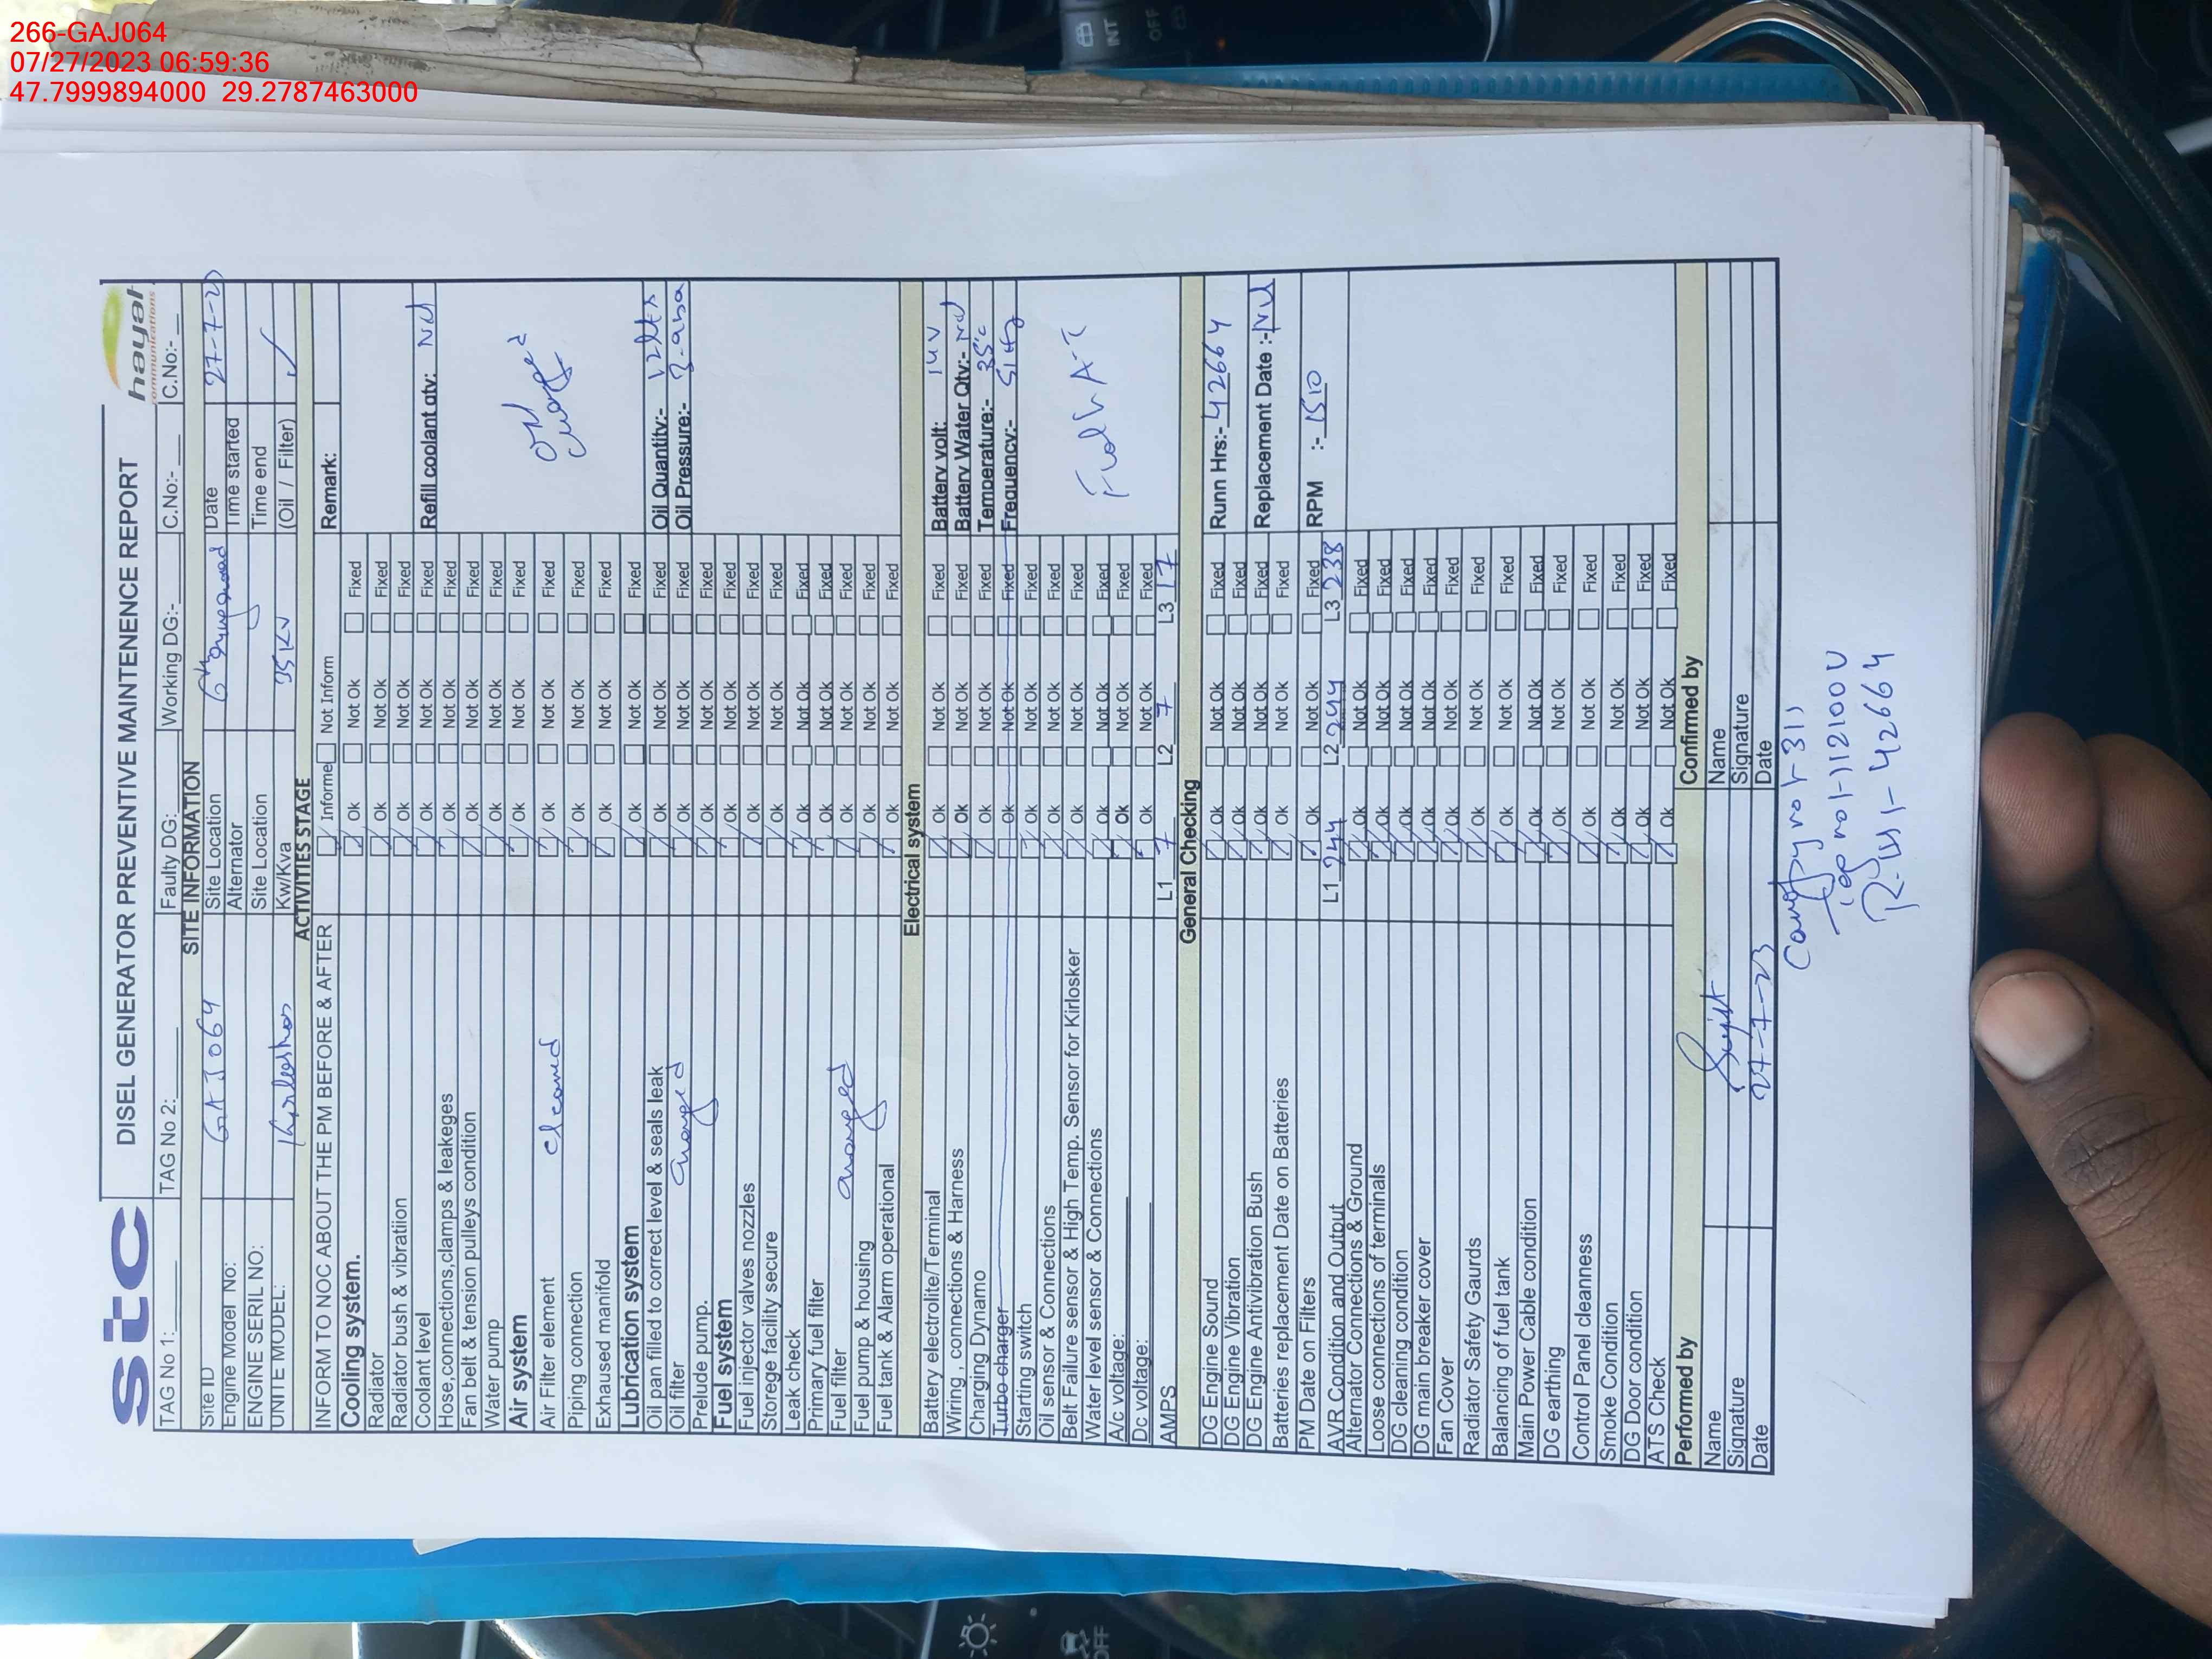 266-GAJ064
07/27/2023 06:59:36
47.7999894000 29.2787463000
stc DISEL GENERATOR PREVENTIVE MAINTENENCE REPORT hayat communications
TAG No 1: TAG No 2: Faulty DG: Working DG:- C.No:- C.No:-
SITE INFORMATION
Site ID GAJ064 Site Location Date 27-7-23
Engine Model No: Alternator Time started
ENGINE SERIL NO: Site Location Time end
UNITE MODEL: Kirloskar Kw/Kva 35KV (Oil / Filter) ✓
ACTIVITIES STAGE
INFORM TO NOC ABOUT THE PM BEFORE & AFTER Informe Not Inform Remark:
Cooling system. Ok Not Ok Fixed
Radiator Ok Not Ok Fixed
Radiator bush & vibratiion Ok Not Ok Fixed
Coolant level Ok Not Ok Fixed Refill coolant qty: Nil
Hose,connections,clamps & leakeges Ok Not Ok Fixed
Fan belt & tension pulleys condition Ok Not Ok Fixed
Water pump Ok Not Ok Fixed
Air system Ok Not Ok Fixed
Air Filter element cleaned Ok Not Ok Fixed
Piping connection Ok Not Ok Fixed
Exhaused manifold Ok Not Ok Fixed
Lubrication system Ok Not Ok Fixed
Oil pan filled to correct level & seals leak Ok Not Ok Fixed Oil Quantity:- 12ltrs
Oil filter changed Ok Not Ok Fixed Oil Pressure:-
Prelude pump. Ok Not Ok Fixed
Fuel system Ok Not Ok Fixed
Fuel injector valves nozzles Ok Not Ok Fixed
Storege facility secure Ok Not Ok Fixed
Leak check Ok Not Ok Fixed
Primary fuel filter Ok Not Ok Fixed
Fuel filter changed Ok Not Ok Fixed
Fuel pump & housing Ok Not Ok Fixed
Fuel tank & Alarm operational Ok Not Ok Fixed
Electrical system
Battery electrolite/Terminal Ok Not Ok Fixed Battery volt: 14V
Wiring , connections & Harness Ok Not Ok Fixed Battery Water Qty:- Nil
Charging Dynamo Ok Not Ok Fixed Temperature:- 35°c
Turbo charger Ok Not Ok Fixed Frequency:- 51Hz
Starting switch Ok Not Ok Fixed
Oil sensor & Connections Ok Not Ok Fixed
Belt Failure sensor & High Temp. Sensor for Kirlosker Ok Not Ok Fixed
Water level sensor & Connections Ok Not Ok Fixed
A/c voltage: Ok Not Ok Fixed
Dc voltage: Ok Not Ok Fixed
AMPS L1 7 L2 7 L3 17
General Checking
DG Engine Sound Ok Not Ok Fixed Runn Hrs:- 42664
DG Engine Vibration Ok Not Ok Fixed
DG Engine Antivibration Bush Ok Not Ok Fixed Replacement Date :- Nil
Batteries replacement Date on Batteries Ok Not Ok Fixed
PM Date on Filters Ok Not Ok Fixed RPM :- 1510
AVR Condition and Output L1 244 L2 244 L3 238
Alternator Connections & Ground Ok Not Ok Fixed
Lose connections of terminals Ok Not Ok Fixed
DG cleaning condition Ok Not Ok Fixed
DG main breaker cover Ok Not Ok Fixed
Fan Cover Ok Not Ok Fixed
Radiator Safety Gaurds Ok Not Ok Fixed
Balancing of fuel tank Ok Not Ok Fixed
Main Power Cable condition Ok Not Ok Fixed
DG earthing Ok Not Ok Fixed
Control Panel cleanness Ok Not Ok Fixed
Smoke Condition Ok Not Ok Fixed
DG Door condition Ok Not Ok Fixed
ATS Check Ok Not Ok Fixed
Performed by Confirmed by
Name Name
Signature Signature
Date 27-7-23 Date
42664
INT OFF
OFF